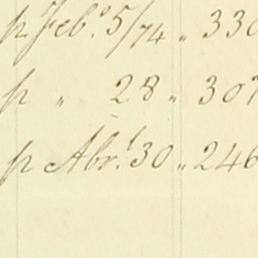 p Feb.º 5/74 „ 330
p „ 28 „ 307
p Abr.l 30 „ 246